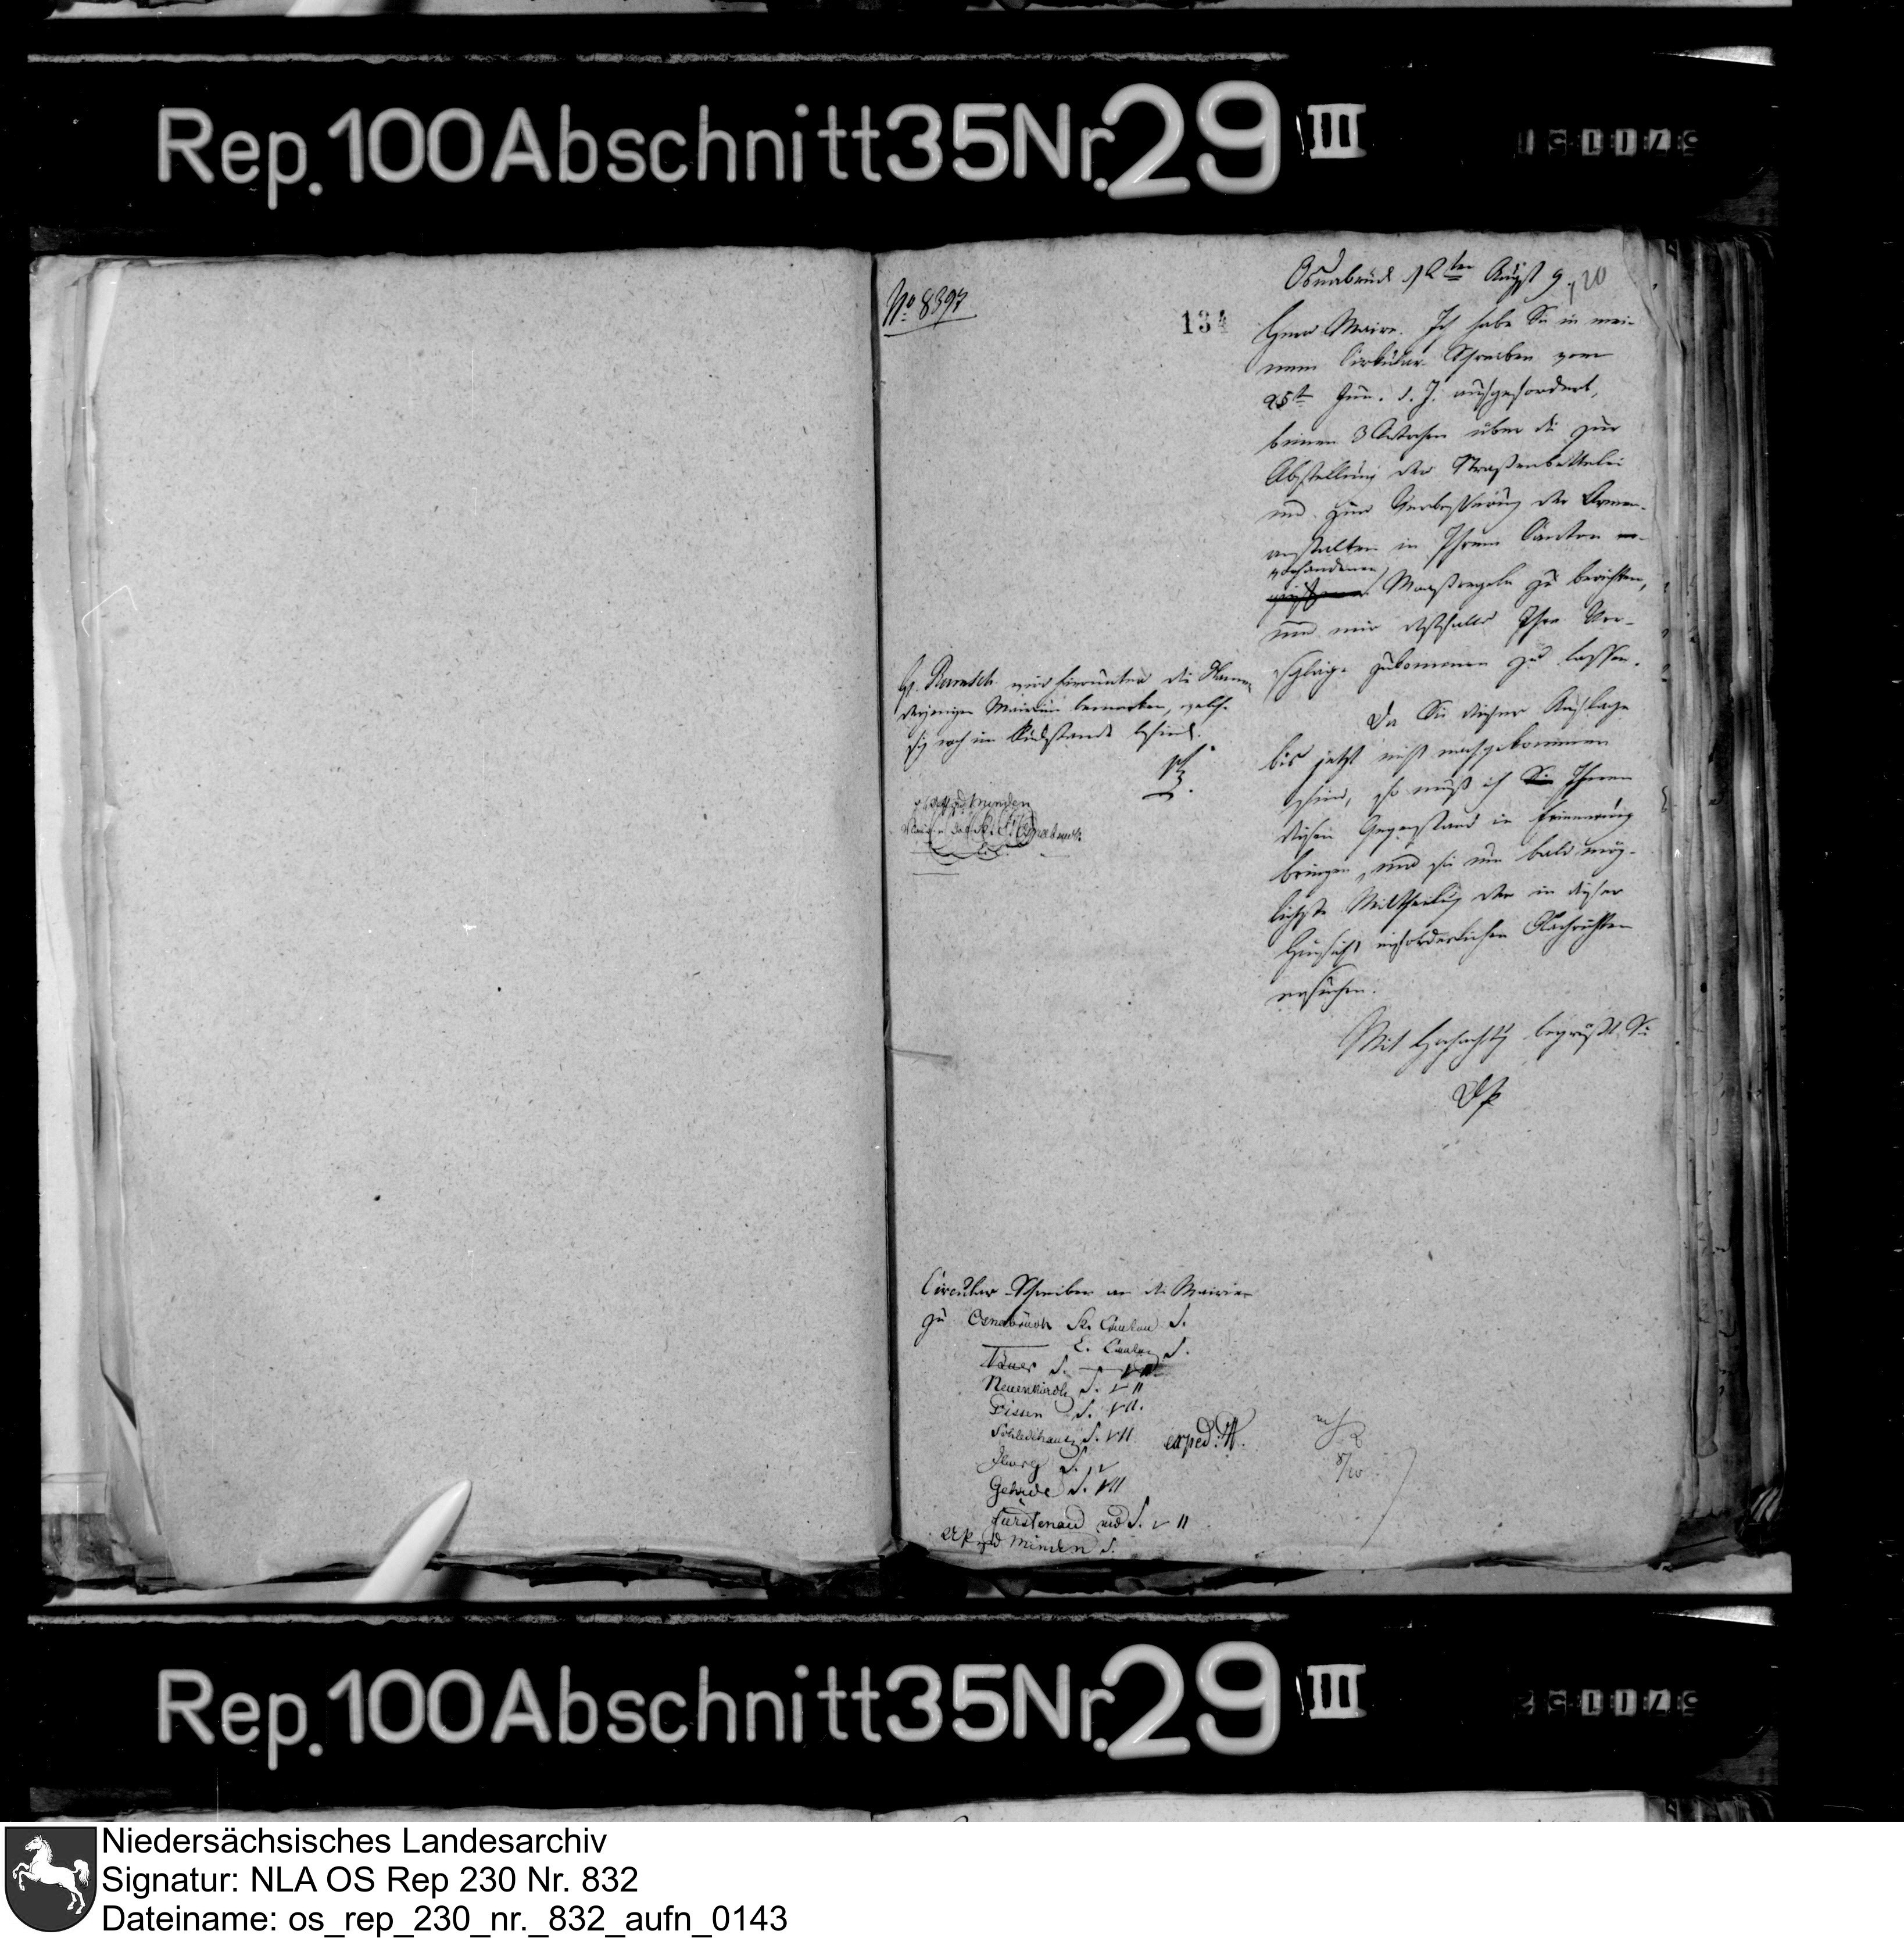 Rep. 100 Abschnitt 35 Nr. 29 III
No 8397
134
Osnabrück d 2ten August 9.
Herr Maire. Ich habe Sie in mei-
nem Cirkular-Schreiben vom
25t Jun. d. J. aufgefordert,
binnen 3 Wochen über die zur
Abstellung der Straßenbettelei
und zur Verbesserung der Armen-
anstalten in Ihrem Canton
vorhandenen
Maaßregeln zu berichten,
und mir deßfalls Ihre Vor-
schläge zukommen zu lassen.
Da Sie dieser Auflage
bis jetzt nicht nachgekommen
sind, so muß ich Sie Ihnen
diesen Gegenstand in Erinnerung
bringen, und Sie um bald mög-
lichste Mittheilung der in dieser
Hinsicht erforderlichen Nachrichten
ersuchen.
Mit Hochachtung begrüßt Sie
H. Ramsch wird hierunter die Namen
derjenigen Mairien bemerken, welche
sich noch im Rückstande befinden.
Minden
Circular-Schreiben an die Mairien
zu Osnabrück St. Canton S.
L. Canton S.
Neuenkirch S.
Dissen S.
Schledehaus S.
exped.
Iburg S.
Gehrde S.
Fürstenau und S.
Minden S.
Rep. 100 Abschnitt 35 Nr. 29 III
Niedersächsisches Landesarchiv
Signatur: NLA OS Rep 230 Nr. 832
Dateiname: os_rep_230_nr._832_aufn_0143